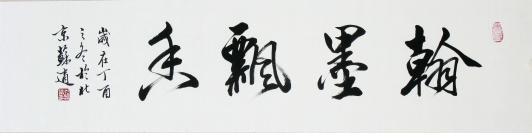 翰墨飘香
岁在丁酉
之冬於北
京苏道